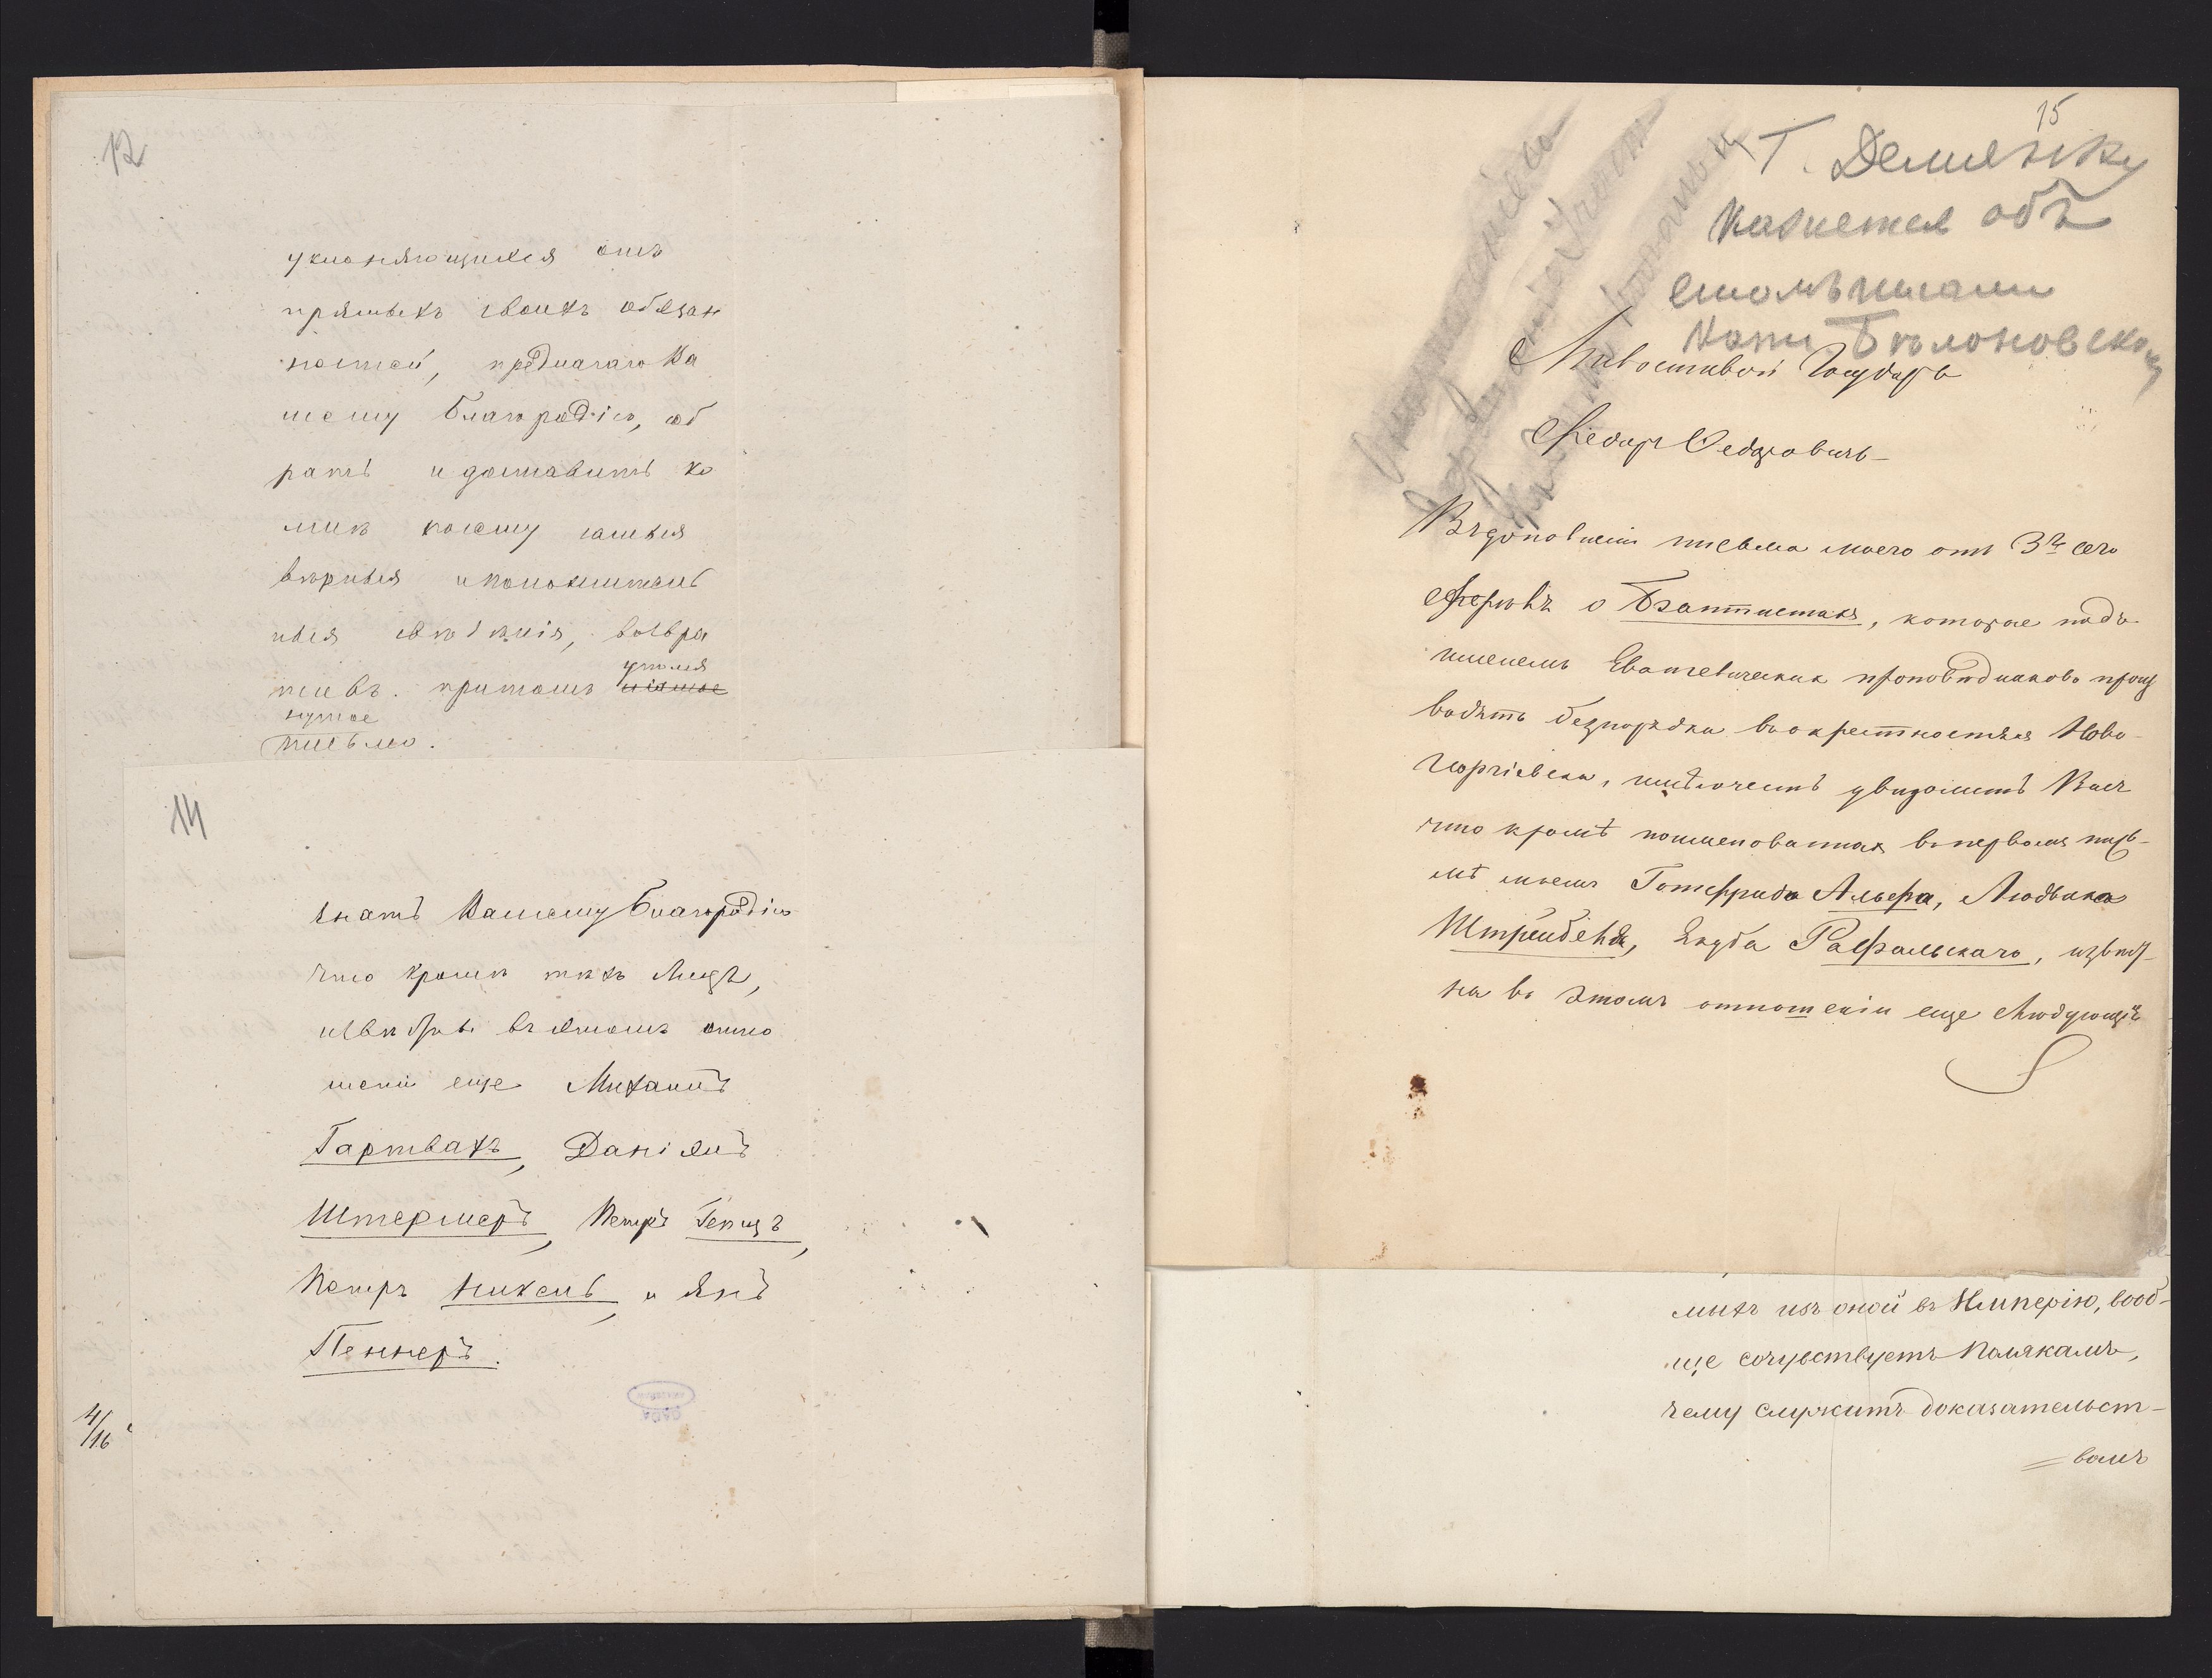 12
уклоняющихся отъ
прямыхъ своихъ обязан
ностей, предлагаю Ва
шему Благородію, об
рать и доставить ко
мнѣ самыя
вѣрныя и положитель
ныя свѣдѣнія, возвра
тивъ притомъ
упомя
нутое
письмо.
14
знать Вашему Благородію
что кромѣ тѣхъ лицъ,
извѣстны въ этомъ отно
шеніи еще Михаилъ
Гартвихъ, Даніэлъ
Штермеръ, Петръ Генцъ,
Петръ Никель, и Янъ
Пеннеръ.
4/16
15
Г. Демянку
Кажется объ
этомъ писали
Кап. Бѣлоновскому
Милостивой Государь
Федоръ Федоровичь
Въ дополненіи письма моего отъ 3го сего
Февраля о Баптистахъ, которые подъ
именемъ Евангелическихъ проповѣдниковъ произ
водятъ безпорядки въ окрестностяхъ Ново-
Георгіевска, имѣю честь увѣдомить Васъ
что кромѣ поименованныхъ въ первомъ пись-
мѣ моемъ Готфрида Альфа, Людвика
Якуба Рафальскаго, извѣст-
ны въ этомъ отношеніи еще слѣдующіе
мыхъ изъ оной въ Имперію, вооб-
ще сочувствуетъ Полякамъ,
чему служитъ доказательст-
=вомъ